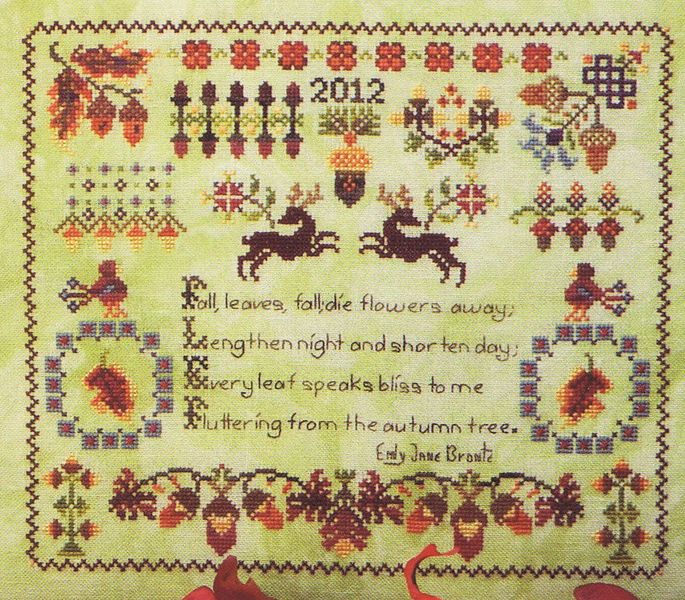 2012
Fall, leaves, fall; die flowers away;
Lengthen night and shorten day;
Every leaf speaks bliss to me
Fluttering from the autumn tree.
Emily Jane Bronte